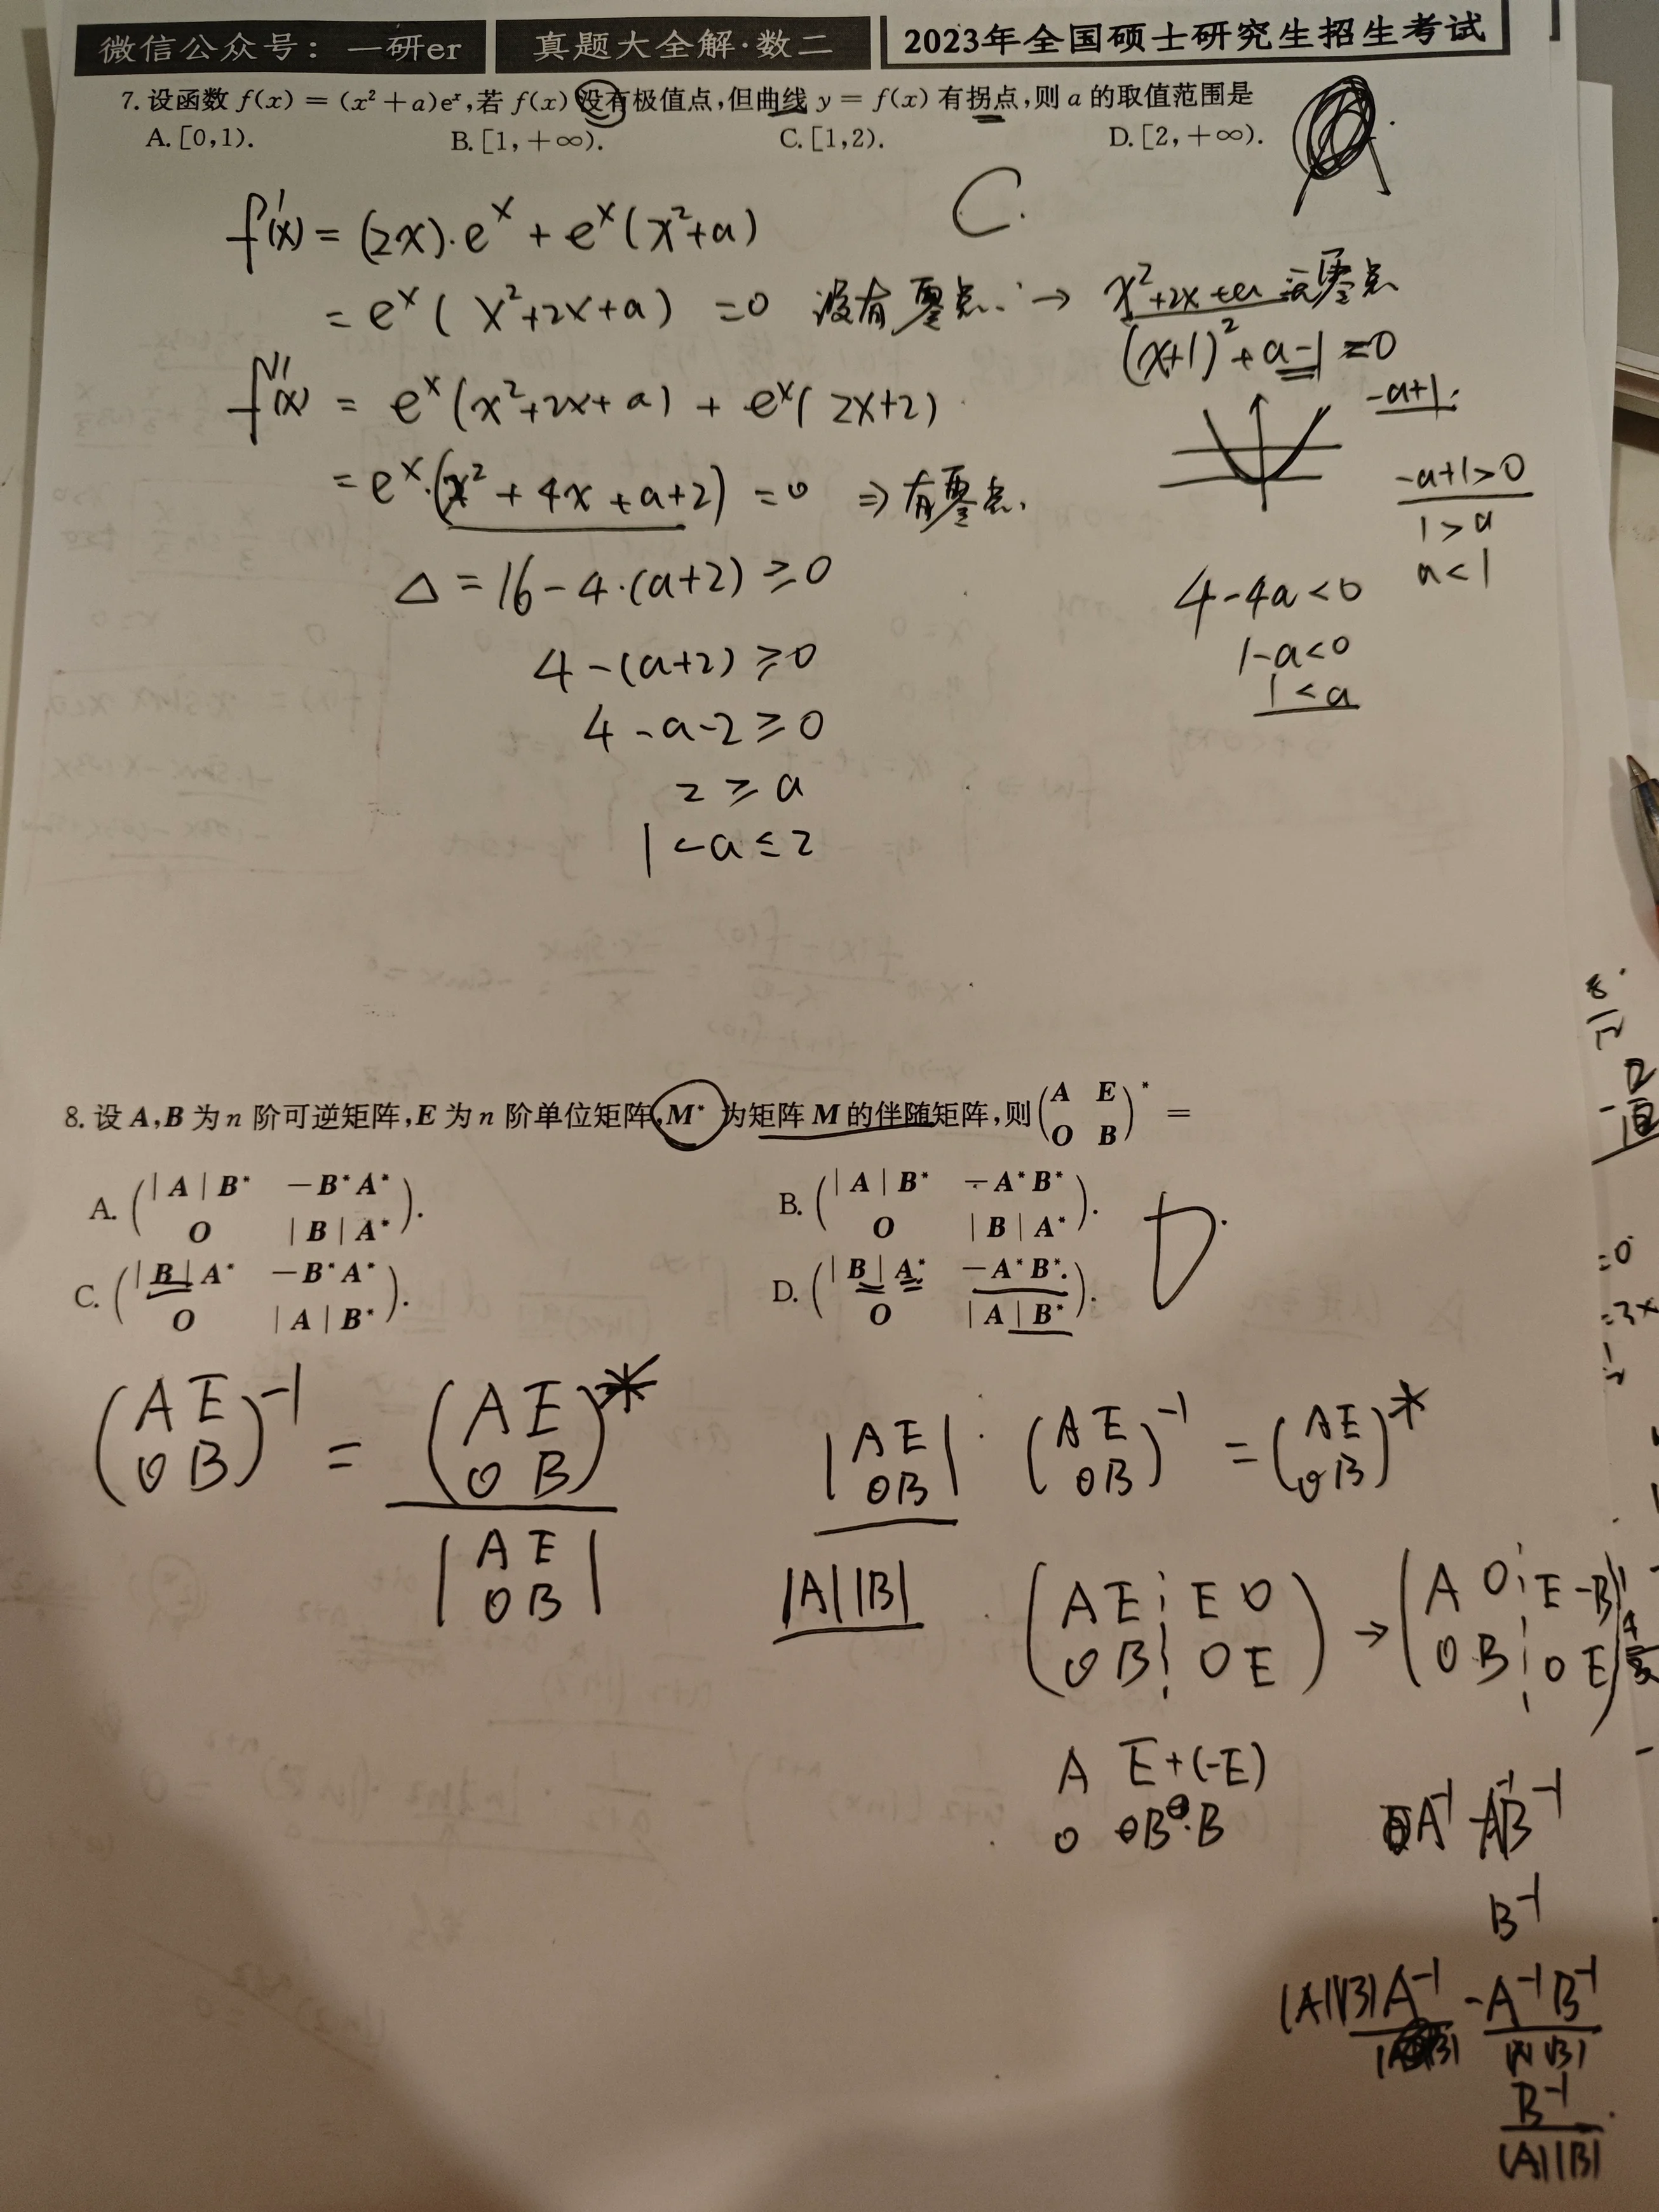 微信公众号：一研er 真题大全解·数二 2023年全国硕士研究生招生考试
7. 设函数 f(x) = (x² + a)eˣ,若 f(x) 没有极值点,但曲线 y = f(x) 有拐点,则 a 的取值范围是
A. [0,1). B. [1,+∞). C. [1,2). D. [2,+∞).
C.
f'(x) = (2x)·eˣ + eˣ(x²+a)
= eˣ( x²+2x+a) =0 没有零点. → x²+2x+a 无零点
(x+1)²+a-1=0
-a+1.
f''(x) = eˣ(x²+2x+a) + eˣ(2x+2)
= eˣ·(x²+4x+a+2) =0 ⇒ 有零点.
-a+1>0
1>a
a<1
Δ = 16-4·(a+2) ≥0
4-(a+2) ≥0
4-a-2 ≥0
2 ≥ a
1<a≤2
4-4a<0
1-a<0
1<a
8. 设 A,B 为 n 阶可逆矩阵,E 为 n 阶单位矩阵,M* 为矩阵 M 的伴随矩阵,则 (A E
O B)* =
A. (|A|B* −B*A*
O |B|A*).
B. (|A|B* −A*B*
O |B|A*).
C. (|B|A* −B*A*
O |A|B*).
D. (|B|A* −A*B*
O |A|B*).
D.
(A E
O B)⁻¹ = (A E
O B)*
|A E
O B|
|A E
O B| · (A E
O B)⁻¹ = (A E
O B)*
|A||B|
(A E ┆ E O
O B ┆ O E) → (A O ┆ E -B⁻¹
O B ┆ O E)
A E+(-E)
O B
A⁻¹ -A⁻¹B⁻¹
B⁻¹
|A||B|A⁻¹ -A⁻¹B⁻¹
|A||B|
B⁻¹
|A||B|